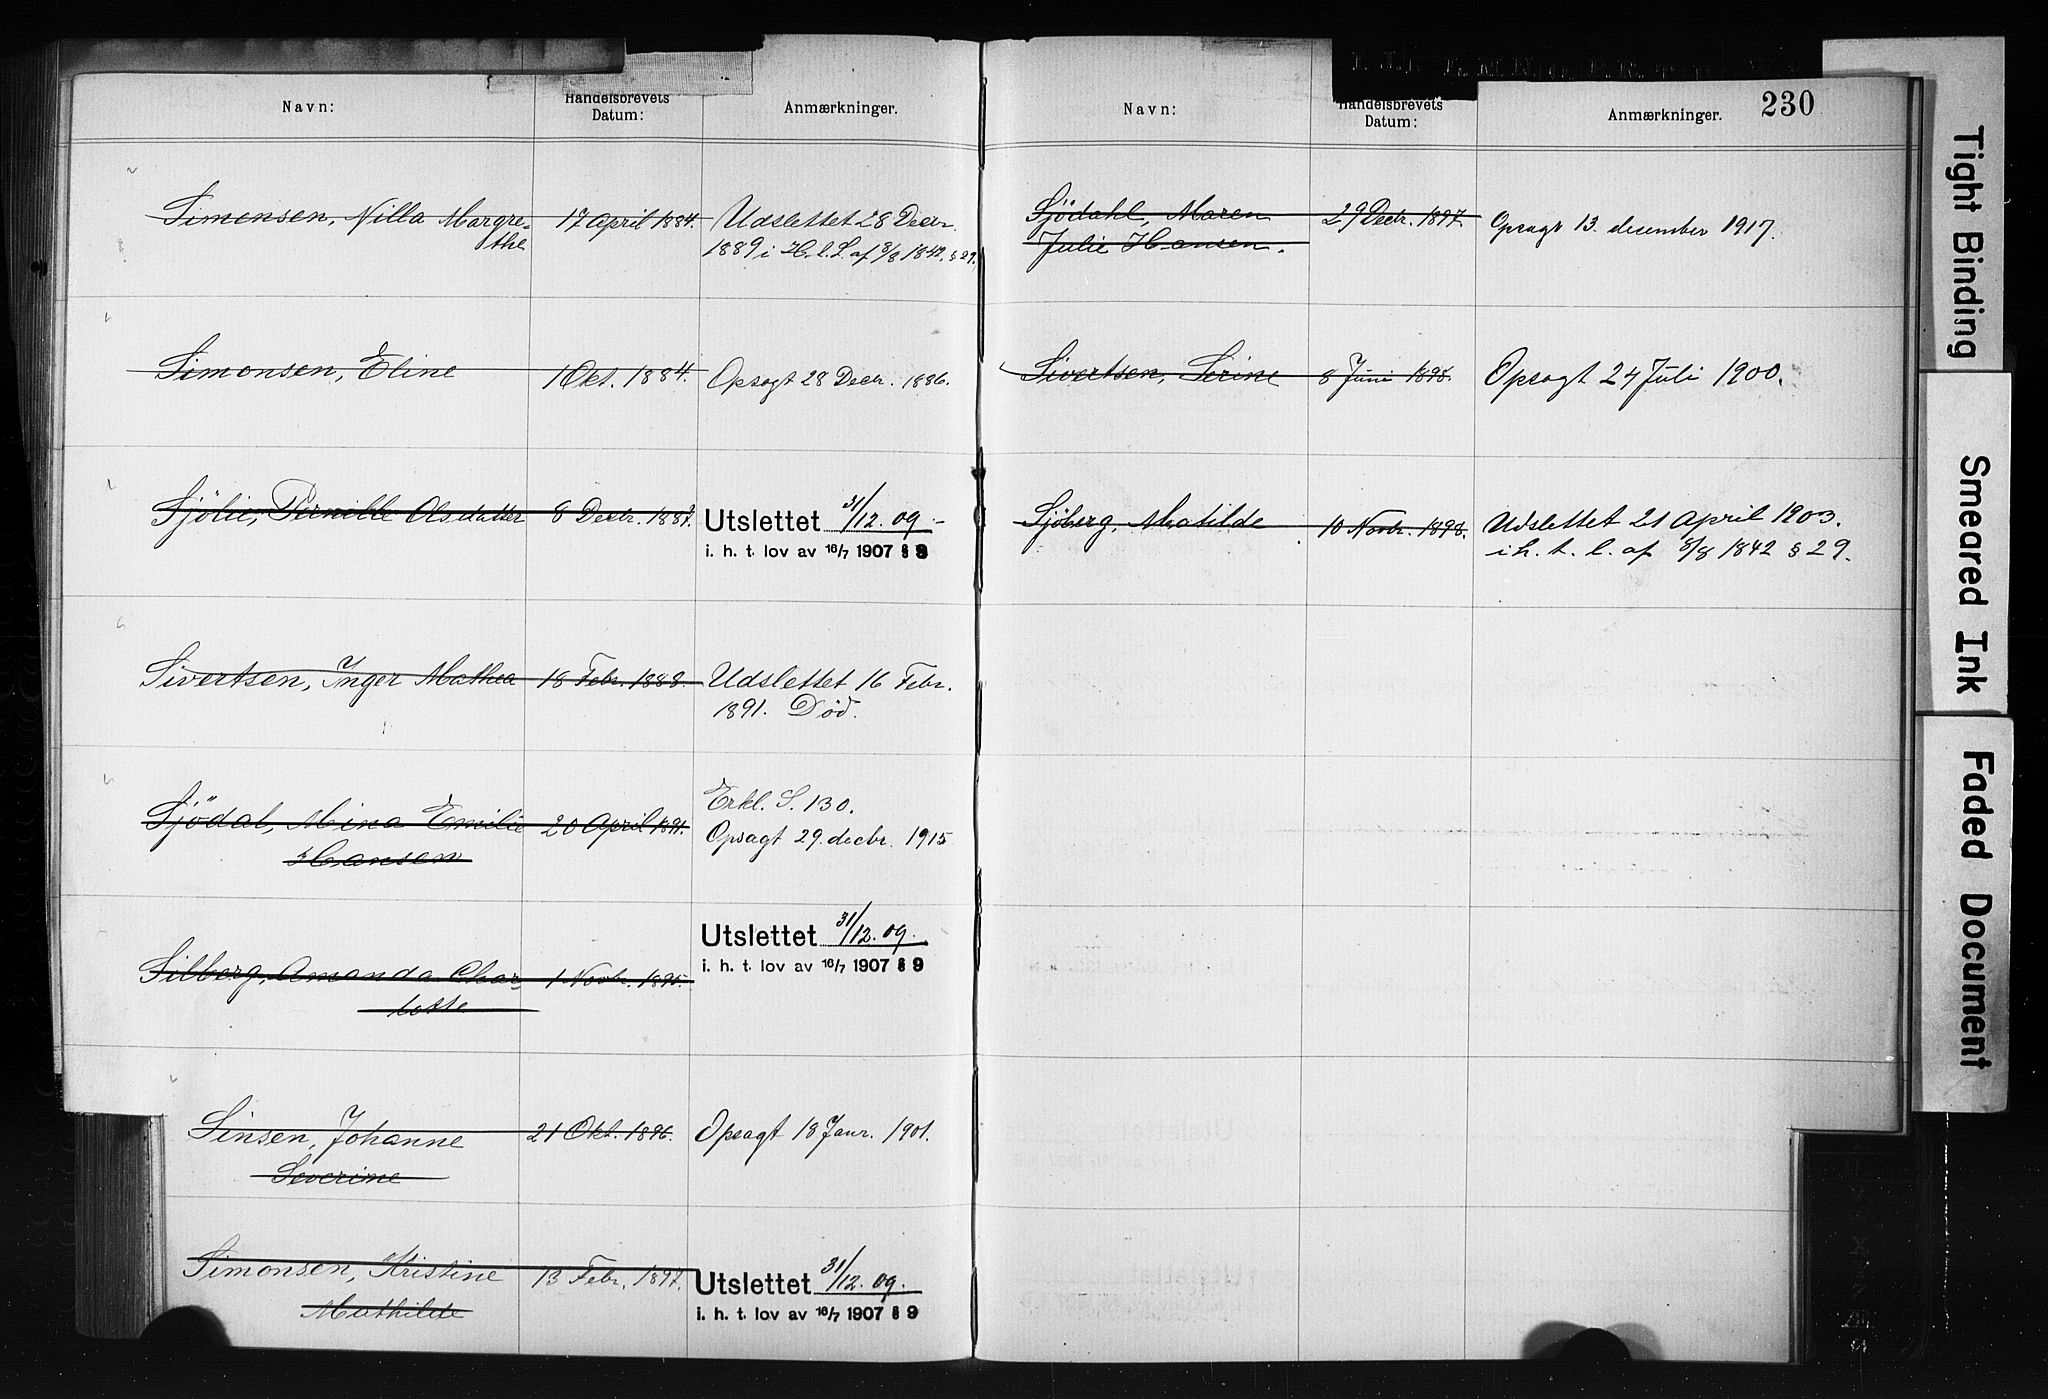 Navn:
Handelsbrevets
Datum:
Anmærkninger.
Simensen, Nilla Margre-
the
17 April 1884.
Udslettet 28 Decbr.
1889 i H. t. L. af 8/8 1842. § 29.
Simonsen, Eline
1 Okt. 1884.
Opsagt 28 Decbr. 1886.
Sjölie, Pernille Olsdatter
8 Decbr. 1887.
Utslettet 31/12. 09.
i. h. t. lov av 16/7 1907 § 9
Sivertsen, Inger Mathea
18 Febr. 1888.
Udslettet 16 Febr.
1891. Död.
Sjödal, Mina Emilie
Hansen
20 April 1891.
Erkl. S. 130.
Opsagt 29. decbr. 1915
Silborg, Amanda Char-
lotte
1 Novbr. 1895.
Utslettet 31/12. 09.
i. h. t. lov av 16/7 1907 § 9
Sinsen, Johanne
Severine
21 Okt. 1896.
Opsagt 18 Janr. 1901.
Simonsen, Kristine
Mathilde
13 Febr. 1897.
Utslettet 31/12. 09.
i. h. t. lov av 16/7 1907 § 9
230
Navn:
Handelsbrevets
Datum:
Anmærkninger.
Sjödahl, Maren
Julie Hansen.
29 Decbr. 1897.
Opsagt 13. desember 1917.
Sivertsen, Serine
8 Juni 1898.
Opsagt 24 Juli 1900.
Sjöberg, Matilde
10 Novbr. 1898.
Udslettet 21 April 1903.
i h. t. l. af 8/8 1842 § 29.
Tight Binding
Smeared Ink
Faded Document